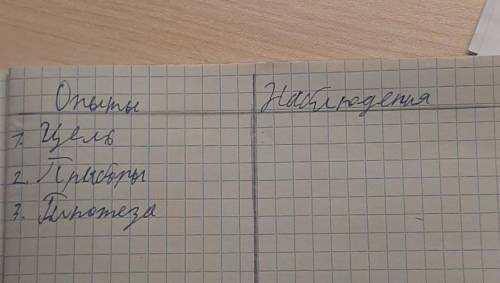 Опыты Наблюдения
1. Цель
2. Приборы
3. Гипотеза